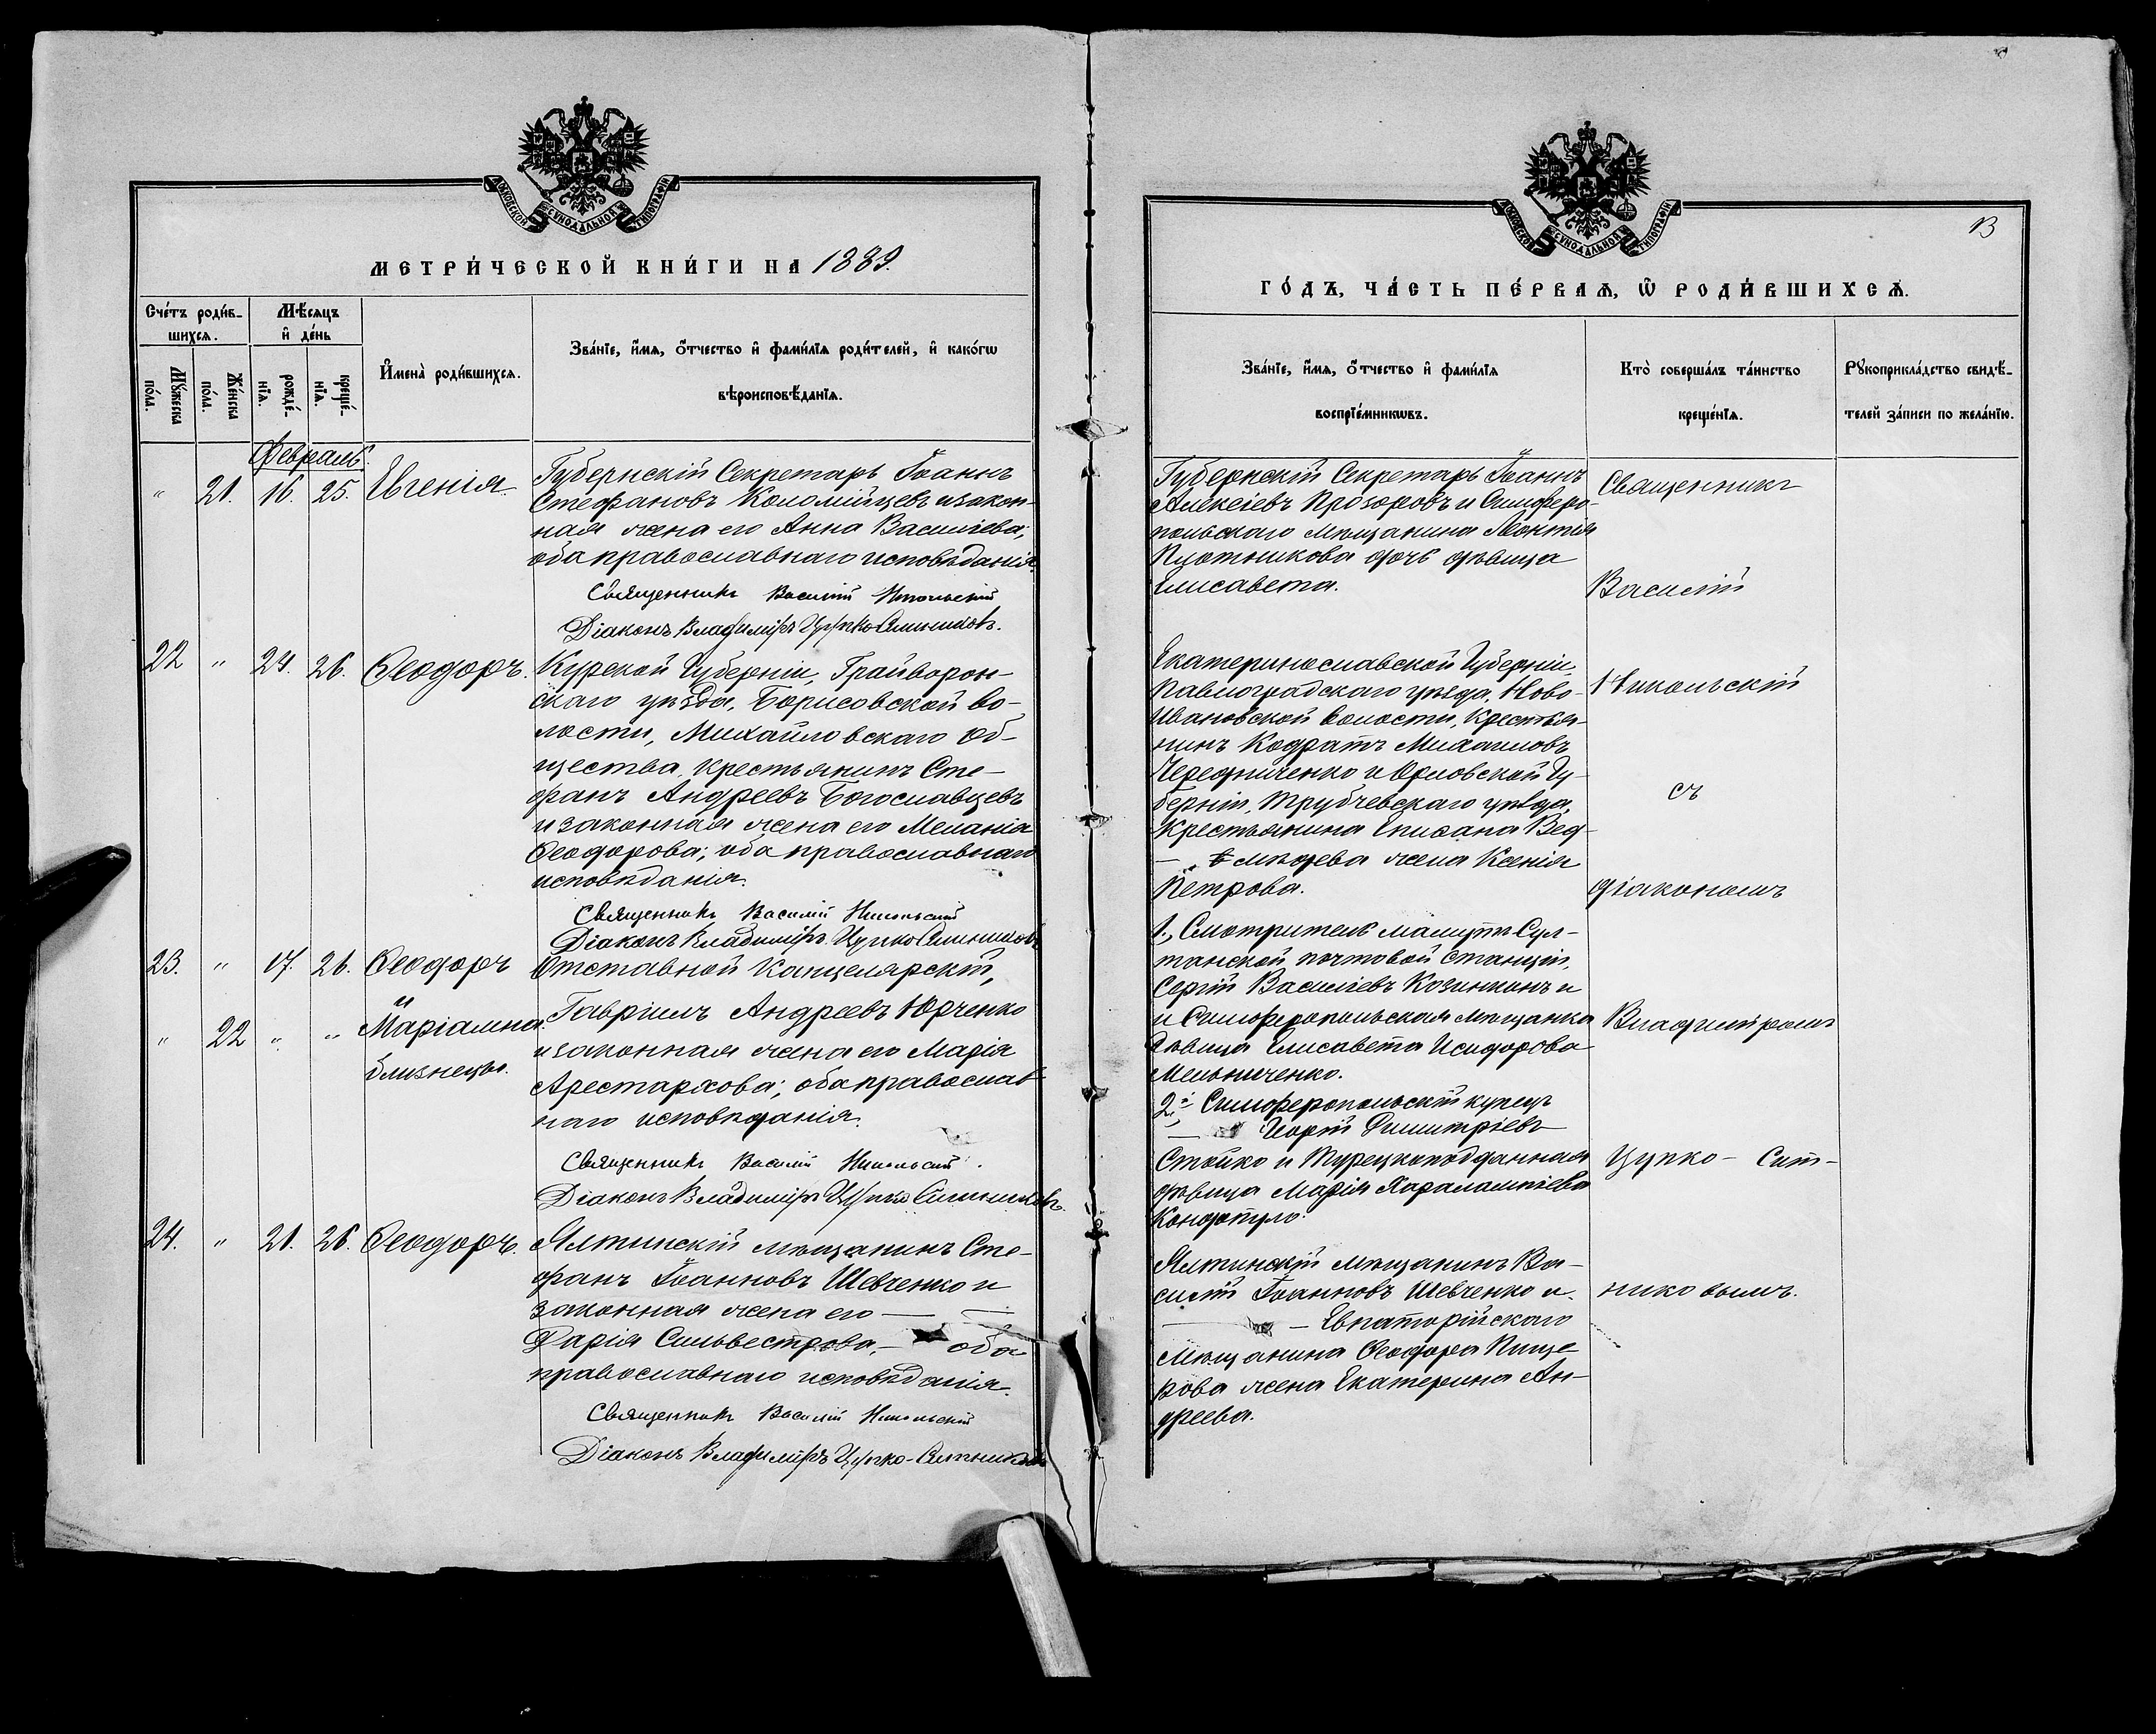 МОСКОВСКОЙ СѴНОДАЛЬНОЙ ТИПОГРАФІИ
МЕТРИ́ЧЕСКОЙ КНИ́ГИ НА 1889.
Сче́тъ роди́в-
шихсѧ.
Мѣ́сѧцъ
и҆ де́нь
Мꙋ́жеска
по́ла.
Же́нска
по́ла.
рожде́-
нїѧ.
креще́-
нїѧ.
И҆мена̀ роди́вшихсѧ.
Зва́нїе, и҆́мѧ, ѻ҆́тчество и҆ фами́лїѧ роди́телей, и҆ како́гѡ
вѣроисповѣ́данїѧ.
Февраль.
" 21. 16. 25. Евгенія.
Губернскій Секретарь Іоаннъ
Стефановъ Коломійцевъ и закон-
ная жена его Анна Василіева;
оба православнаго исповѣданія.
Священникъ Василій Никольскій
Діаконъ Владиміръ Цупко-Ситниковъ.
22 " 24. 26. Ѳеодоръ.
Курской Губерніи, Грайворон-
скаго уѣзда, Борисовской во-
лости, Михайловскаго Об-
щества, крестьянинъ Сте-
фанъ Андреевъ Богославцевъ
и законная жена его Меланія
Ѳеодорова; оба православнаго
исповѣданія.
Священникъ Василій Никольскій
Діаконъ Владиміръ Цупко-Ситниковъ
23. " 17. 26. Ѳеодоръ
и
" 22 " " Маріамна
близнецы.
Отставной Канцелярскій,
Гавріилъ Андреевъ Юрченко
и законная жена его Марія
Арестархова; оба православ-
наго исповѣданія.
Священникъ Василій Никольскій.
Діаконъ Владиміръ Цупко-Ситниковъ.
24. " 21. 26. Ѳеодоръ.
Ялтинскій мѣщанинъ Сте-
фанъ Іоанновъ Шевченко и
законная жена его —
Дарія Сильвестрова, — оба
православнаго исповѣданія.
Священникъ Василій Никольскій
Діаконъ Владиміръ Цупко-Ситниковъ
МОСКОВСКОЙ СѴНОДАЛЬНОЙ ТИПОГРАФІИ
13
ГО́ДЪ, ЧА́СТЬ ПЕ́РВАѦ, Ѽ РОДИ́ВШИХСѦ.
Зва́нїе, и҆́мѧ, ѻ҆́тчество и҆ фами́лїѧ
воспрїе́мникѡвъ.
Кто̀ соверша́лъ та́инство
креще́нїѧ.
Рꙋкоприкла́дство свидѣ́-
телей за́писи по жела́нїю.
Губернскій Секретарь Іоаннъ
Алексіевъ Прозоровъ и Симферо-
польскаго мѣщанина Леонтія
Плотникова дочь дѣвица
Елисавета.
Екатеринославской Губерніи,
Павлоградскаго уѣзда, Ново-
Ивановской волости, Крестья-
нинъ Кодратъ Михаиловъ
Чередниченко и Орловской Гу-
берніи, Трубчевскаго уѣзда,
Крестьянина Вед-
жена Ксенія
Петрова.
1., Смотритель Мамутъ Сул-
танской почтовой Станціи,
Сергій Василіевъ Козинкинъ и
и Симферопольская мѣщанка
дѣвица Елисавета Исидорова
Мельниченко.
2., Симферопольскій купецъ
Димитріевъ
Стойко и Турецкоподданная
дѣвица Марія Харалампіева
Ялтинскій мѣщанинъ Ва-
силій Іоанновъ Шевченко и
— Евпаторійскаго
мѣщанина Ѳеодора Пище
рова жена Екатерина Ан-
дреева.
Священникъ
Василій
Никольскій
съ
діакономъ
Владиміромъ
Цупко- Сит-
никовымъ.